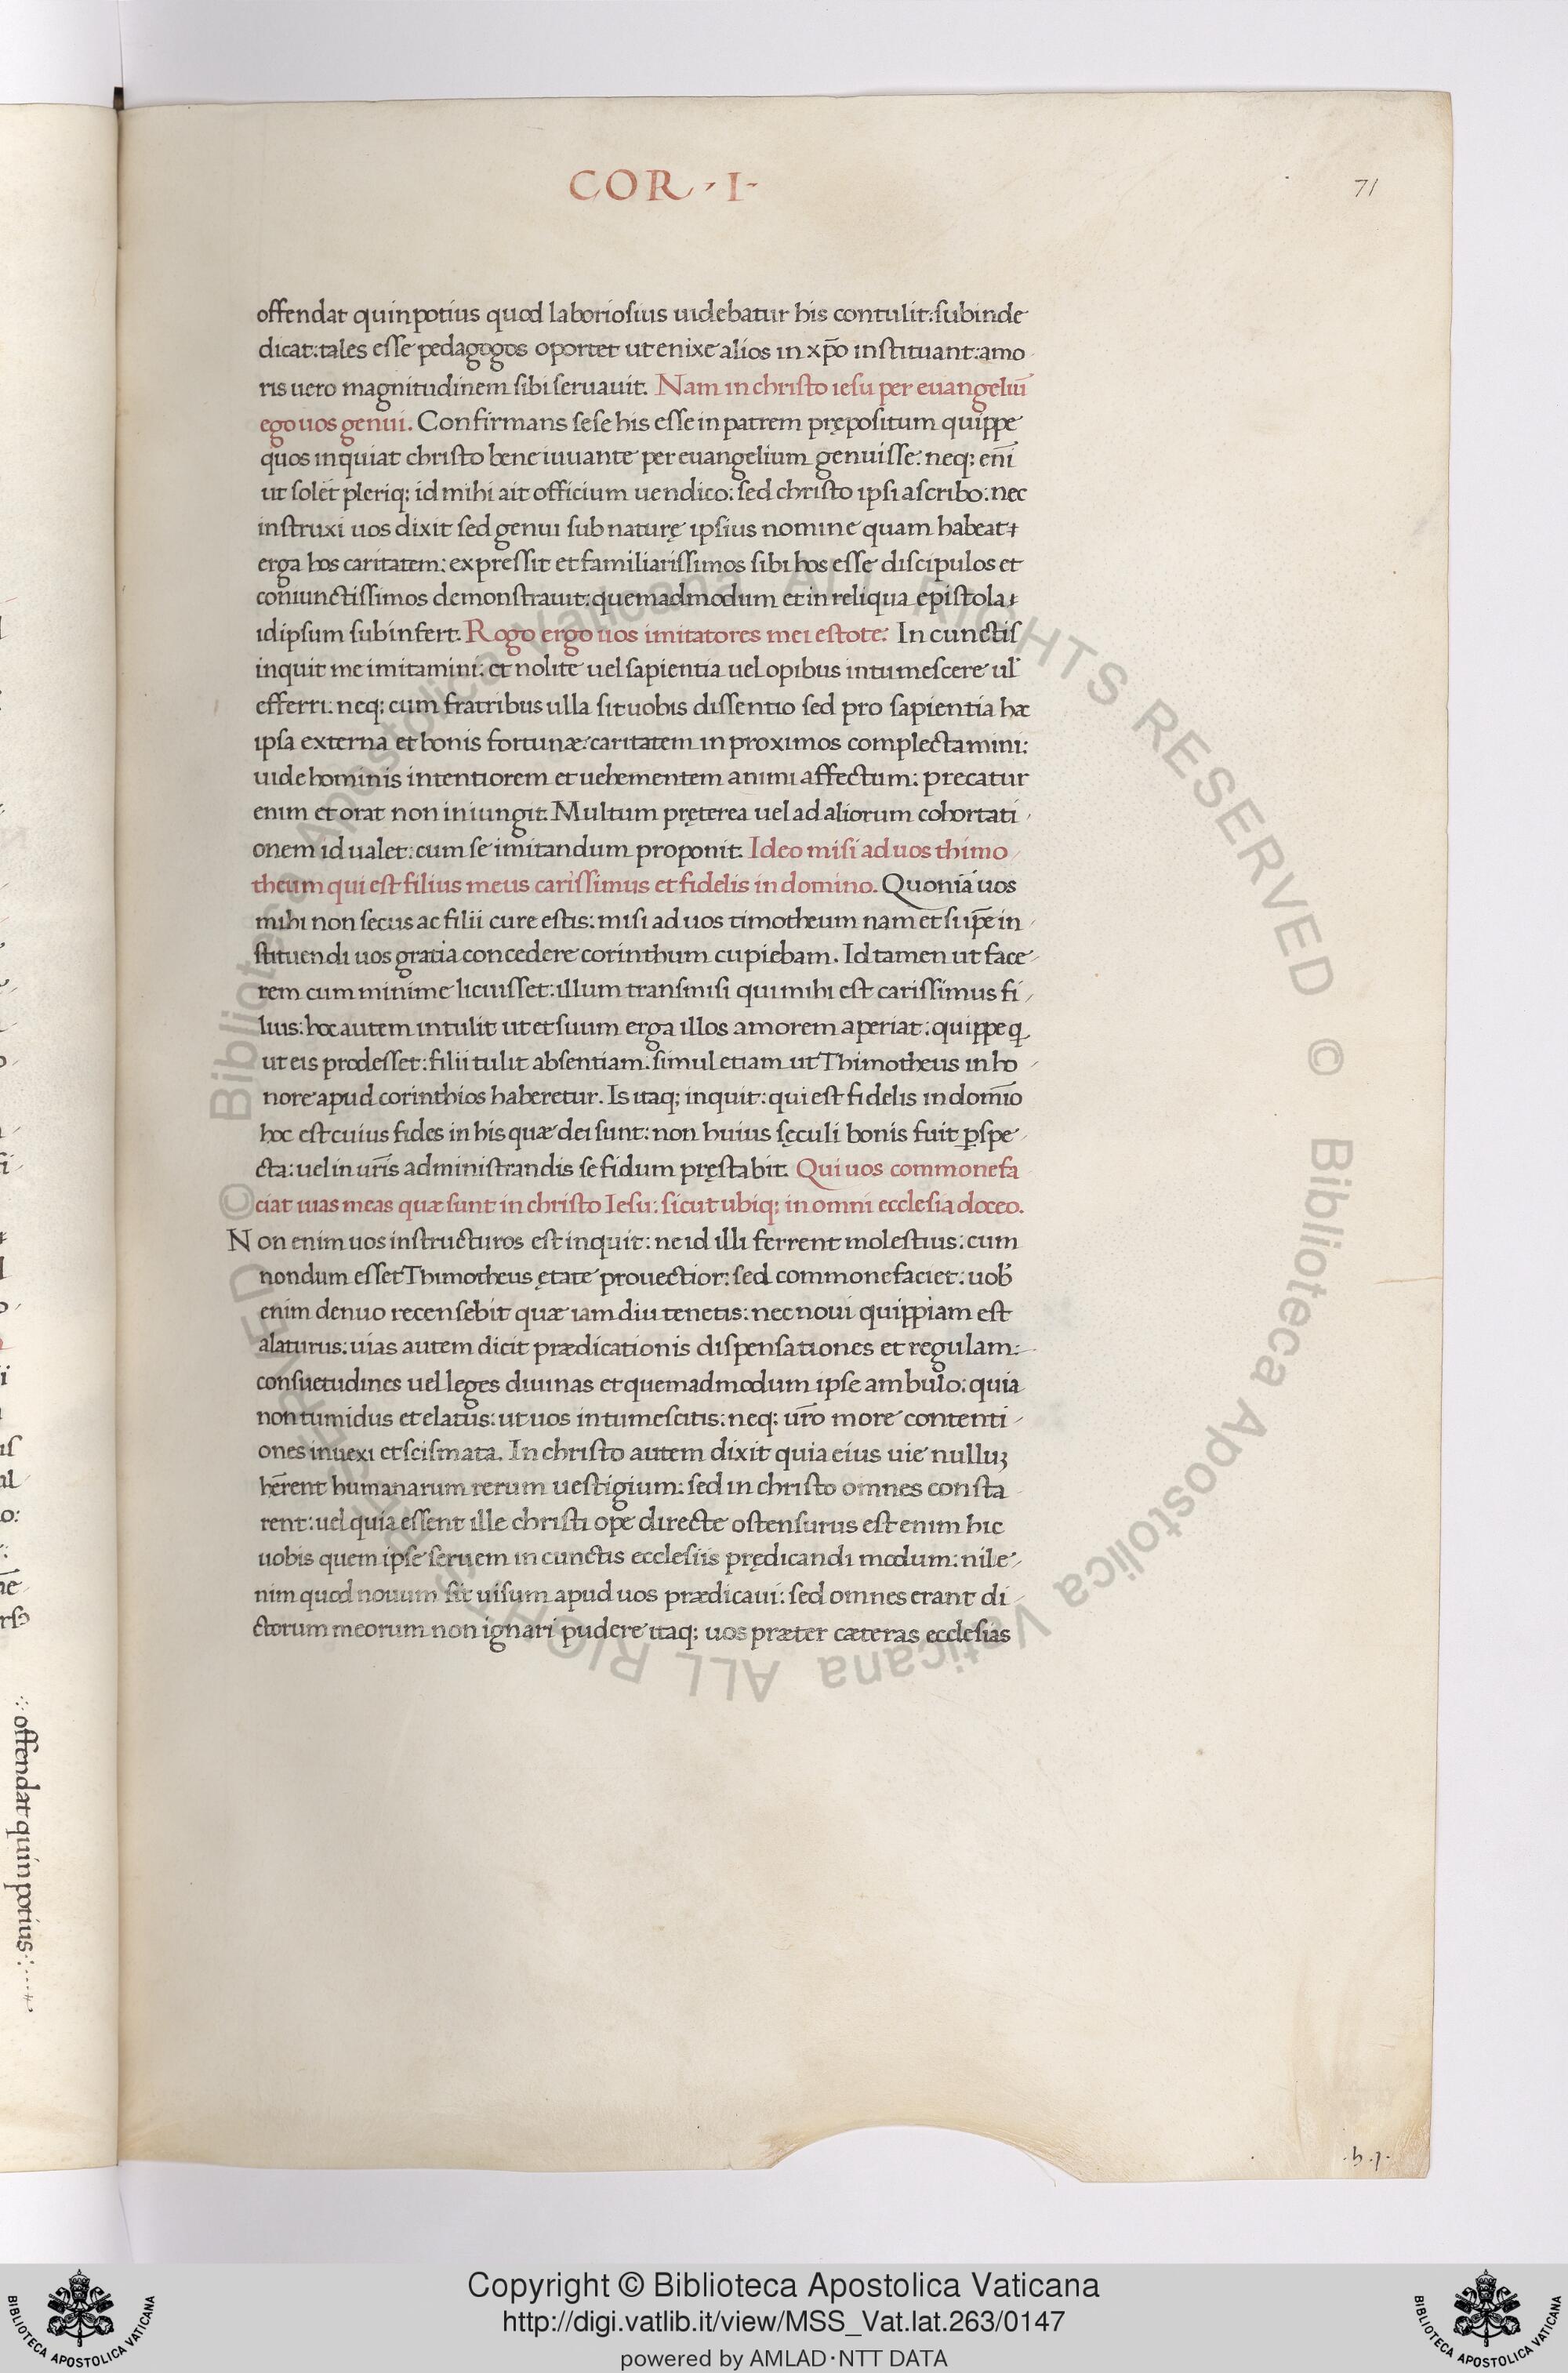 COR · I ·
71
offendat quin potius quod laboriosius uidebatur his contulit: subinde
dicat: tales esse pedagogos oportet ut enixe alios in xp̄o instituant: amo
ris uero magnitudinem sibi seruauit. Nam in christo iesu per euangeliū
ego uos genui. Confirmans sese his esse in patrem prępositum quippe
quos inquiat christo bene iuuante per euangelium genuisse. neq; eni̅
ut solet pleriq; id mihi ait officium uendico: sed christo ipsi ascribo: nec
instruxi uos dixit sed genui sub naturę ipsius nomine quam habeat
erga hos caritatem: expressit et familiarissimos sibi hos esse discipulos et
coniunctissimos demonstrauit: quemadmodum et in reliqua epistola
idipsum subinfert. Rogo ergo uos imitatores mei estote. In cunctis
inquit me imitamini: et nolite uel sapientia uel opibus intumescere ul̓
efferri. neq; cum fratribus ulla sit uobis dissentio sed pro sapientia hæ
ipsa externa et bonis fortunæ: caritatem in proximos complectamini:
uide hominis intentiorem et uehementem animi affectum: precatur
enim et orat non iniungit. Multum pręterea uel ad aliorum cohortati
onem id ualet: cum se imitandum proponit. Ideo misi ad uos thimo
theum qui est filius meus carissimus et fidelis in domino. Quoniā uos
mihi non secus ac filii cure estis: misi ad uos timotheum nam et si ip̄e in
stituendi uos gratia concedere corinthum cupiebam. Id tamen ut face
rem cum minime licuisset: illum transmisi qui mihi est carissimus fi
lius: hoc autem intulit ut et suum erga illos amorem aperiat: quippe q
ut eis prodesset: filii tulit absentiam. simul etiam ut Thimotheus in ho
nore apud corinthios haberetur. Is itaq; inquit: qui est fidelis in domi̅o
hoc est cuius fides in his quæ dei sunt: non huius sęculi bonis fuit ꝑspe
cta: uel in ur̄is administrandis se fidum pręstabit. Qui uos commonefa
ciat uias meas quæ sunt in christo Iesu: sicut ubiq; in omni ecclesia doceo.
Non enim uos instructuros est inquit: ne id illi ferrent molestius: cum
nondum esset Thimotheus ętate prouectior: sed commonefaciet: uob̓
enim denuo recensebit quæ iam diu tenetis: nec noui quippiam est
alaturus: uias autem dicit prædicationis dispensationes et regulam:
consuetudines uel leges diuinas et quemadmodum ipse ambulo: quia
non tumidus et elatus: ut uos intumescitis: neq; ur̄o more contenti
ones inuexi et scismata. In christo autem dixit quia eius uie nulluꝫ
hēr̄ent humanarum rerum uestigium: sed in christo omnes consta
rent: uel quia essent ille christi ope directe ostensurus est enim hic
uobis quem ipse seruem in cunctis ecclesiis prędicandi modum: nil e
nim quod nouum sit uisum apud uos prædicaui: sed omnes erant di
ctorum meorum non ignari pudere itaq; uos præter cæteras ecclesias
offendat quin potius
.h.1.
© Biblioteca Apostolica Vaticana ALL RIGHTS RESERVED © Biblioteca Apostolica Vaticana ALL RIGHTS RESERVED
Copyright © Biblioteca Apostolica Vaticana
http://digi.vatlib.it/view/MSS_Vat.lat.263/0147
powered by AMLAD·NTT DATA
BIBLIOTECA APOSTOLICA VATICANA
BIBLIOTECA APOSTOLICA VATICANA